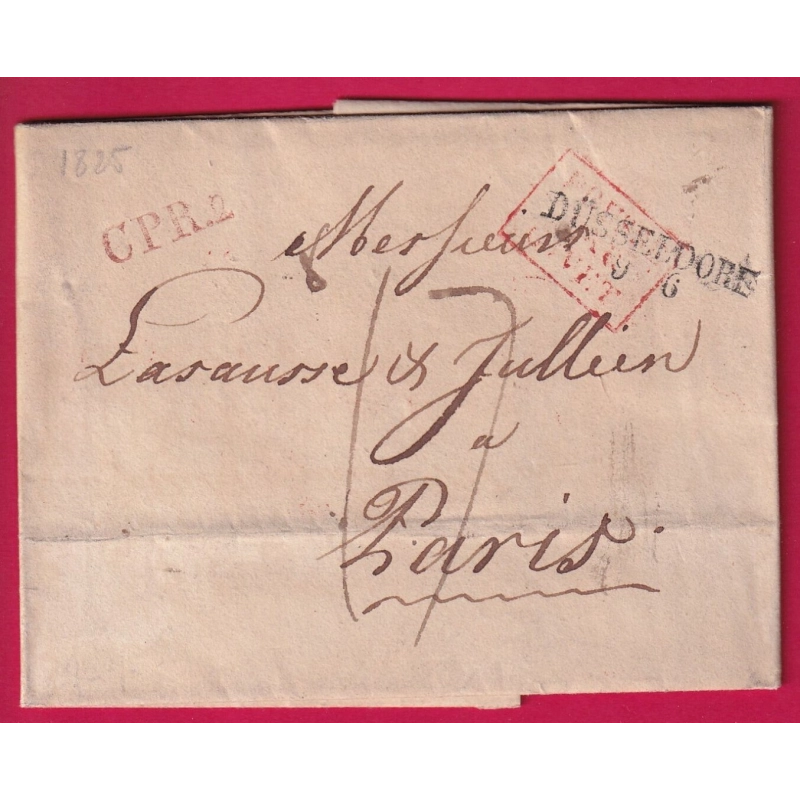 1825
CPR.2
DUSSELDORF
9 6
Messieurs
Lasausse & Jullien
17
a
Paris.